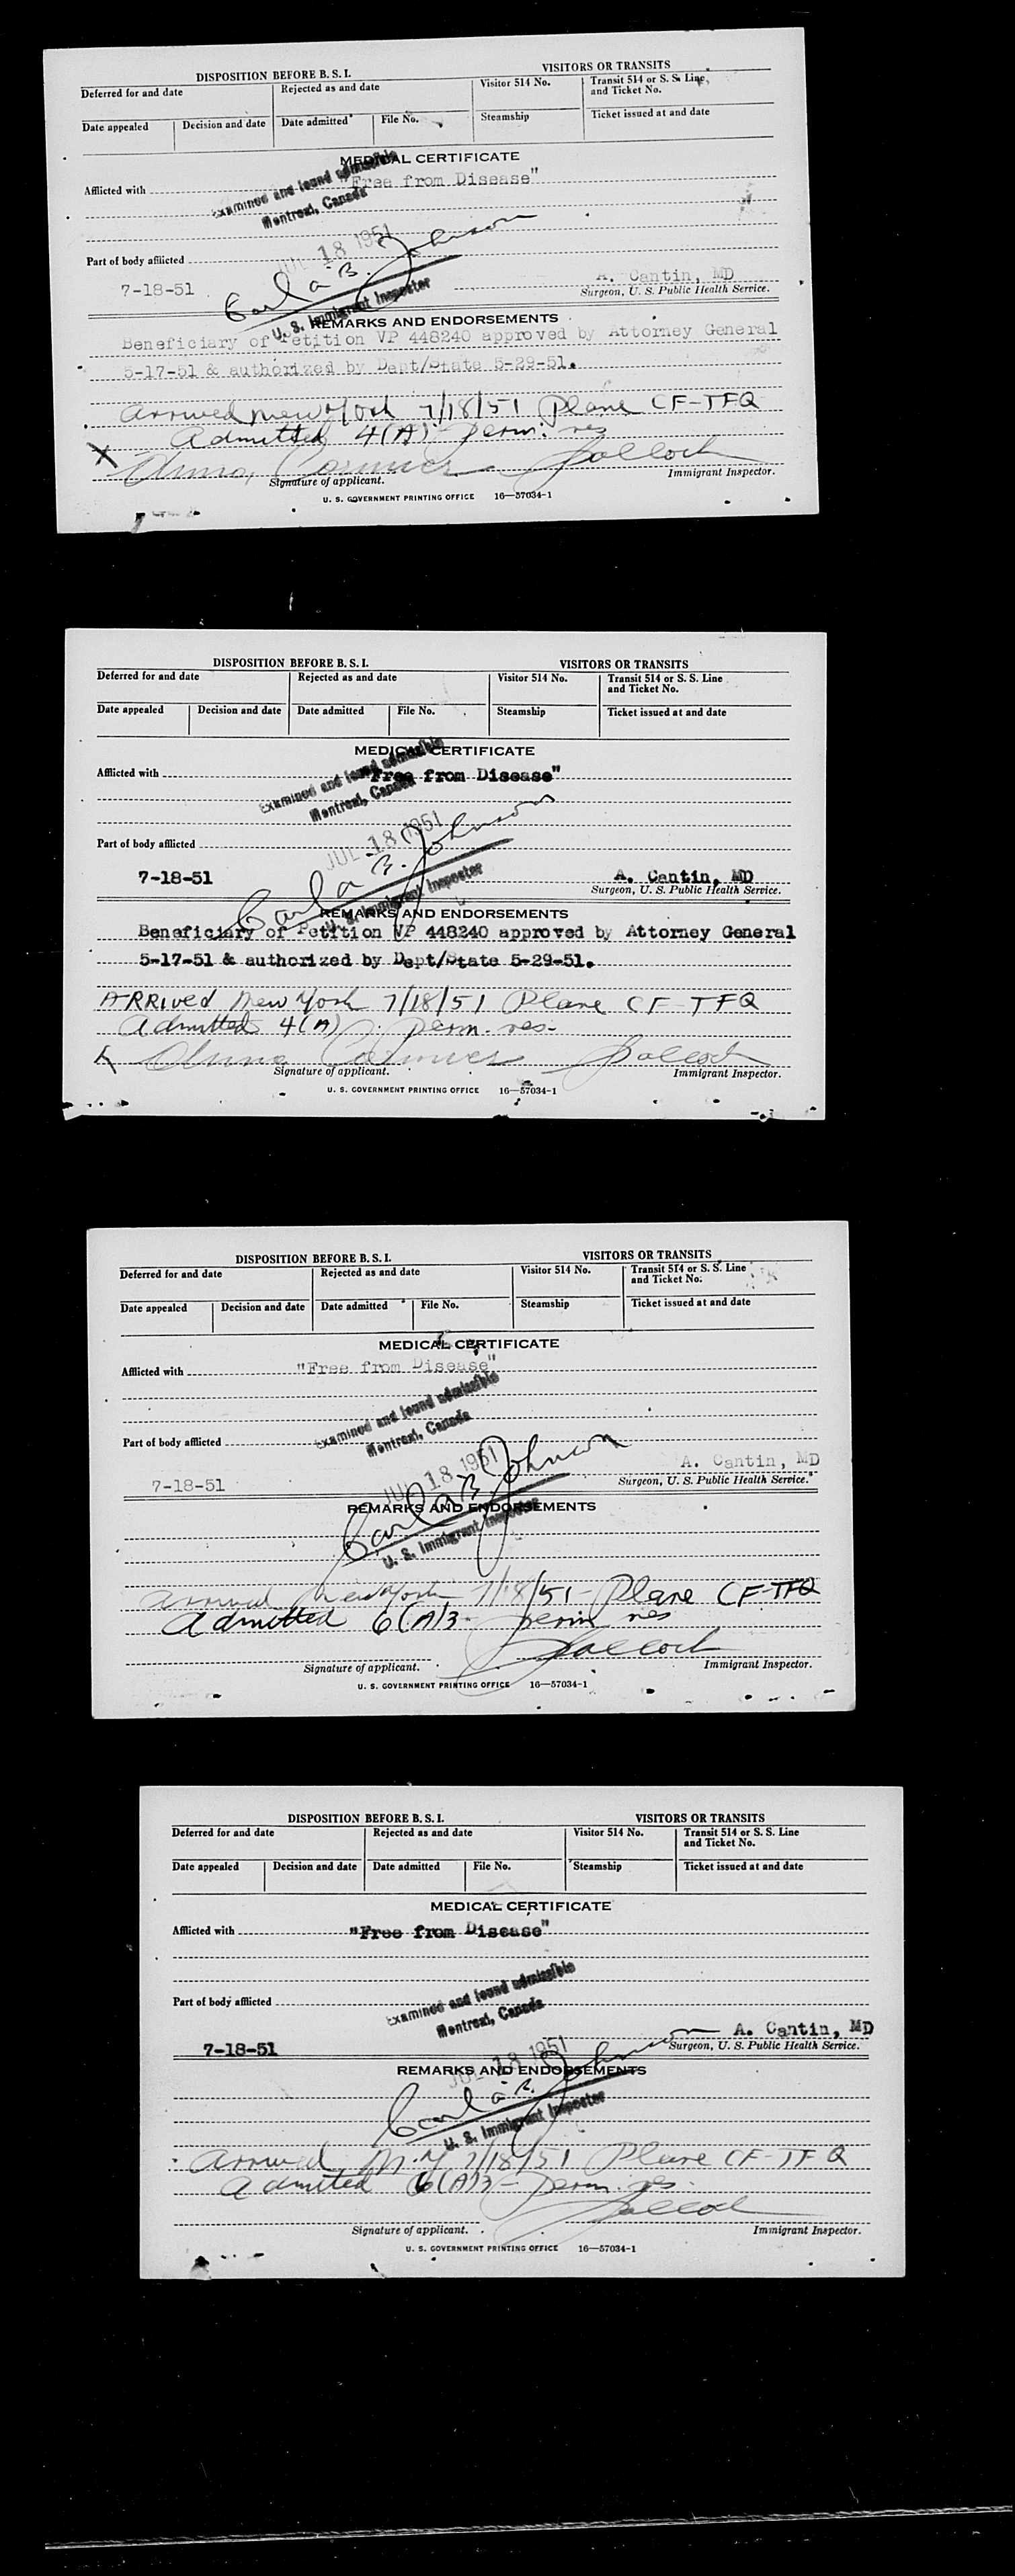 DISPOSITION BEFORE B. S. I. VISITORS OR TRANSITS
Deferred for and date Rejected as and date Visitor 514 No. Transit 514 or S. S. Line and Ticket No.
Date appealed Decision and date Date admitted File No. Steamship Ticket issued at and date
MEDICAL CERTIFICATE
Afflicted with "Free from Disease"
Examined and found admissible
Montreal, Canada
JUL 18 1951
Part of body afflicted
Carl B. Johnson
7-18-51 A. Cantin, MD
Surgeon, U. S. Public Health Service.
U. S. Immigrant Inspector
REMARKS AND ENDORSEMENTS
Beneficiary of Petition VP 448240 approved by Attorney General
5-17-51 & authorized by Dept/State 5-29-51.
Arrived New York 7/18/51 Plane CF-TFQ
Admitted 4(A) - perm. res
X Anna Cormier
Signature of applicant. Immigrant Inspector.
U. S. GOVERNMENT PRINTING OFFICE 16—57034-1
DISPOSITION BEFORE B. S. I. VISITORS OR TRANSITS
Deferred for and date Rejected as and date Visitor 514 No. Transit 514 or S. S. Line and Ticket No.
Date appealed Decision and date Date admitted File No. Steamship Ticket issued at and date
MEDICAL CERTIFICATE
Afflicted with "Free from Disease"
Examined and found admissible
Montreal, Canada
JUL 18 1951
Part of body afflicted
Carl B. Johnson
7-18-51 A. Cantin, MD
Surgeon, U. S. Public Health Service.
U. S. Immigrant Inspector
REMARKS AND ENDORSEMENTS
Beneficiary of Petition VP 448240 approved by Attorney General
5-17-51 & authorized by Dept/State 5-29-51.
ARRived New York 7/18/51 Plane CF-TFQ
Admitted 4(A) perm. res.
X Anna Cormier
Signature of applicant. Immigrant Inspector.
U. S. GOVERNMENT PRINTING OFFICE 16—57034-1
DISPOSITION BEFORE B. S. I. VISITORS OR TRANSITS
Deferred for and date Rejected as and date Visitor 514 No. Transit 514 or S. S. Line and Ticket No.
Date appealed Decision and date Date admitted File No. Steamship Ticket issued at and date
MEDICAL CERTIFICATE
Afflicted with "Free from Disease"
Examined and found admissible
Montreal, Canada
Part of body afflicted
JUL 18 1951
Carl B. Johnson
7-18-51 A. Cantin, MD
Surgeon, U. S. Public Health Service.
REMARKS AND ENDORSEMENTS
U. S. Immigrant Inspector
Arrived New York 7/18/51 - Plane CF-TFQ
Admitted 6(A)3- perm res
Signature of applicant. Immigrant Inspector.
U. S. GOVERNMENT PRINTING OFFICE 16—57034-1
DISPOSITION BEFORE B. S. I. VISITORS OR TRANSITS
Deferred for and date Rejected as and date Visitor 514 No. Transit 514 or S. S. Line and Ticket No.
Date appealed Decision and date Date admitted File No. Steamship Ticket issued at and date
MEDICAL CERTIFICATE
Afflicted with "Free from Disease"
Examined and found admissible
Montreal, Canada
Part of body afflicted
7-18-51 A. Cantin, MD
Surgeon, U. S. Public Health Service.
JUL 18 1951
REMARKS AND ENDORSEMENTS
Carl B. Johnson
U. S. Immigrant Inspector
Arrived N.Y. 7/18/51 Plane CF-TFQ
Admitted 6(A)3 - perm. res.
Signature of applicant. Immigrant Inspector.
U. S. GOVERNMENT PRINTING OFFICE 16—57034-1